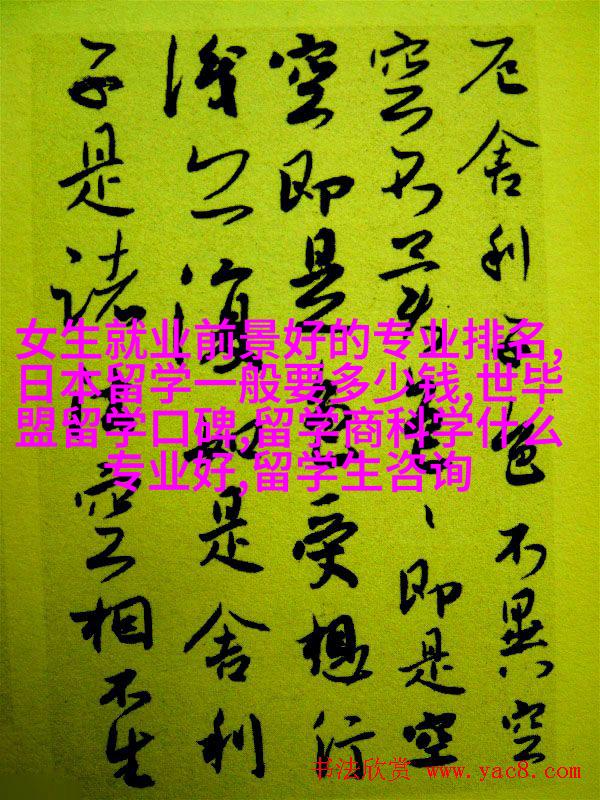 厄舍利子色不異空
空不異色、即是空
空即是色受想行
識亦復如是舍利
子是諸法空相不生
女生就业前景好的专业排名,
日本留学一般要多少钱,世毕
盟留学口碑,留学商科学什么
专业好,留学生咨询
书法欣赏 www.yac8.com